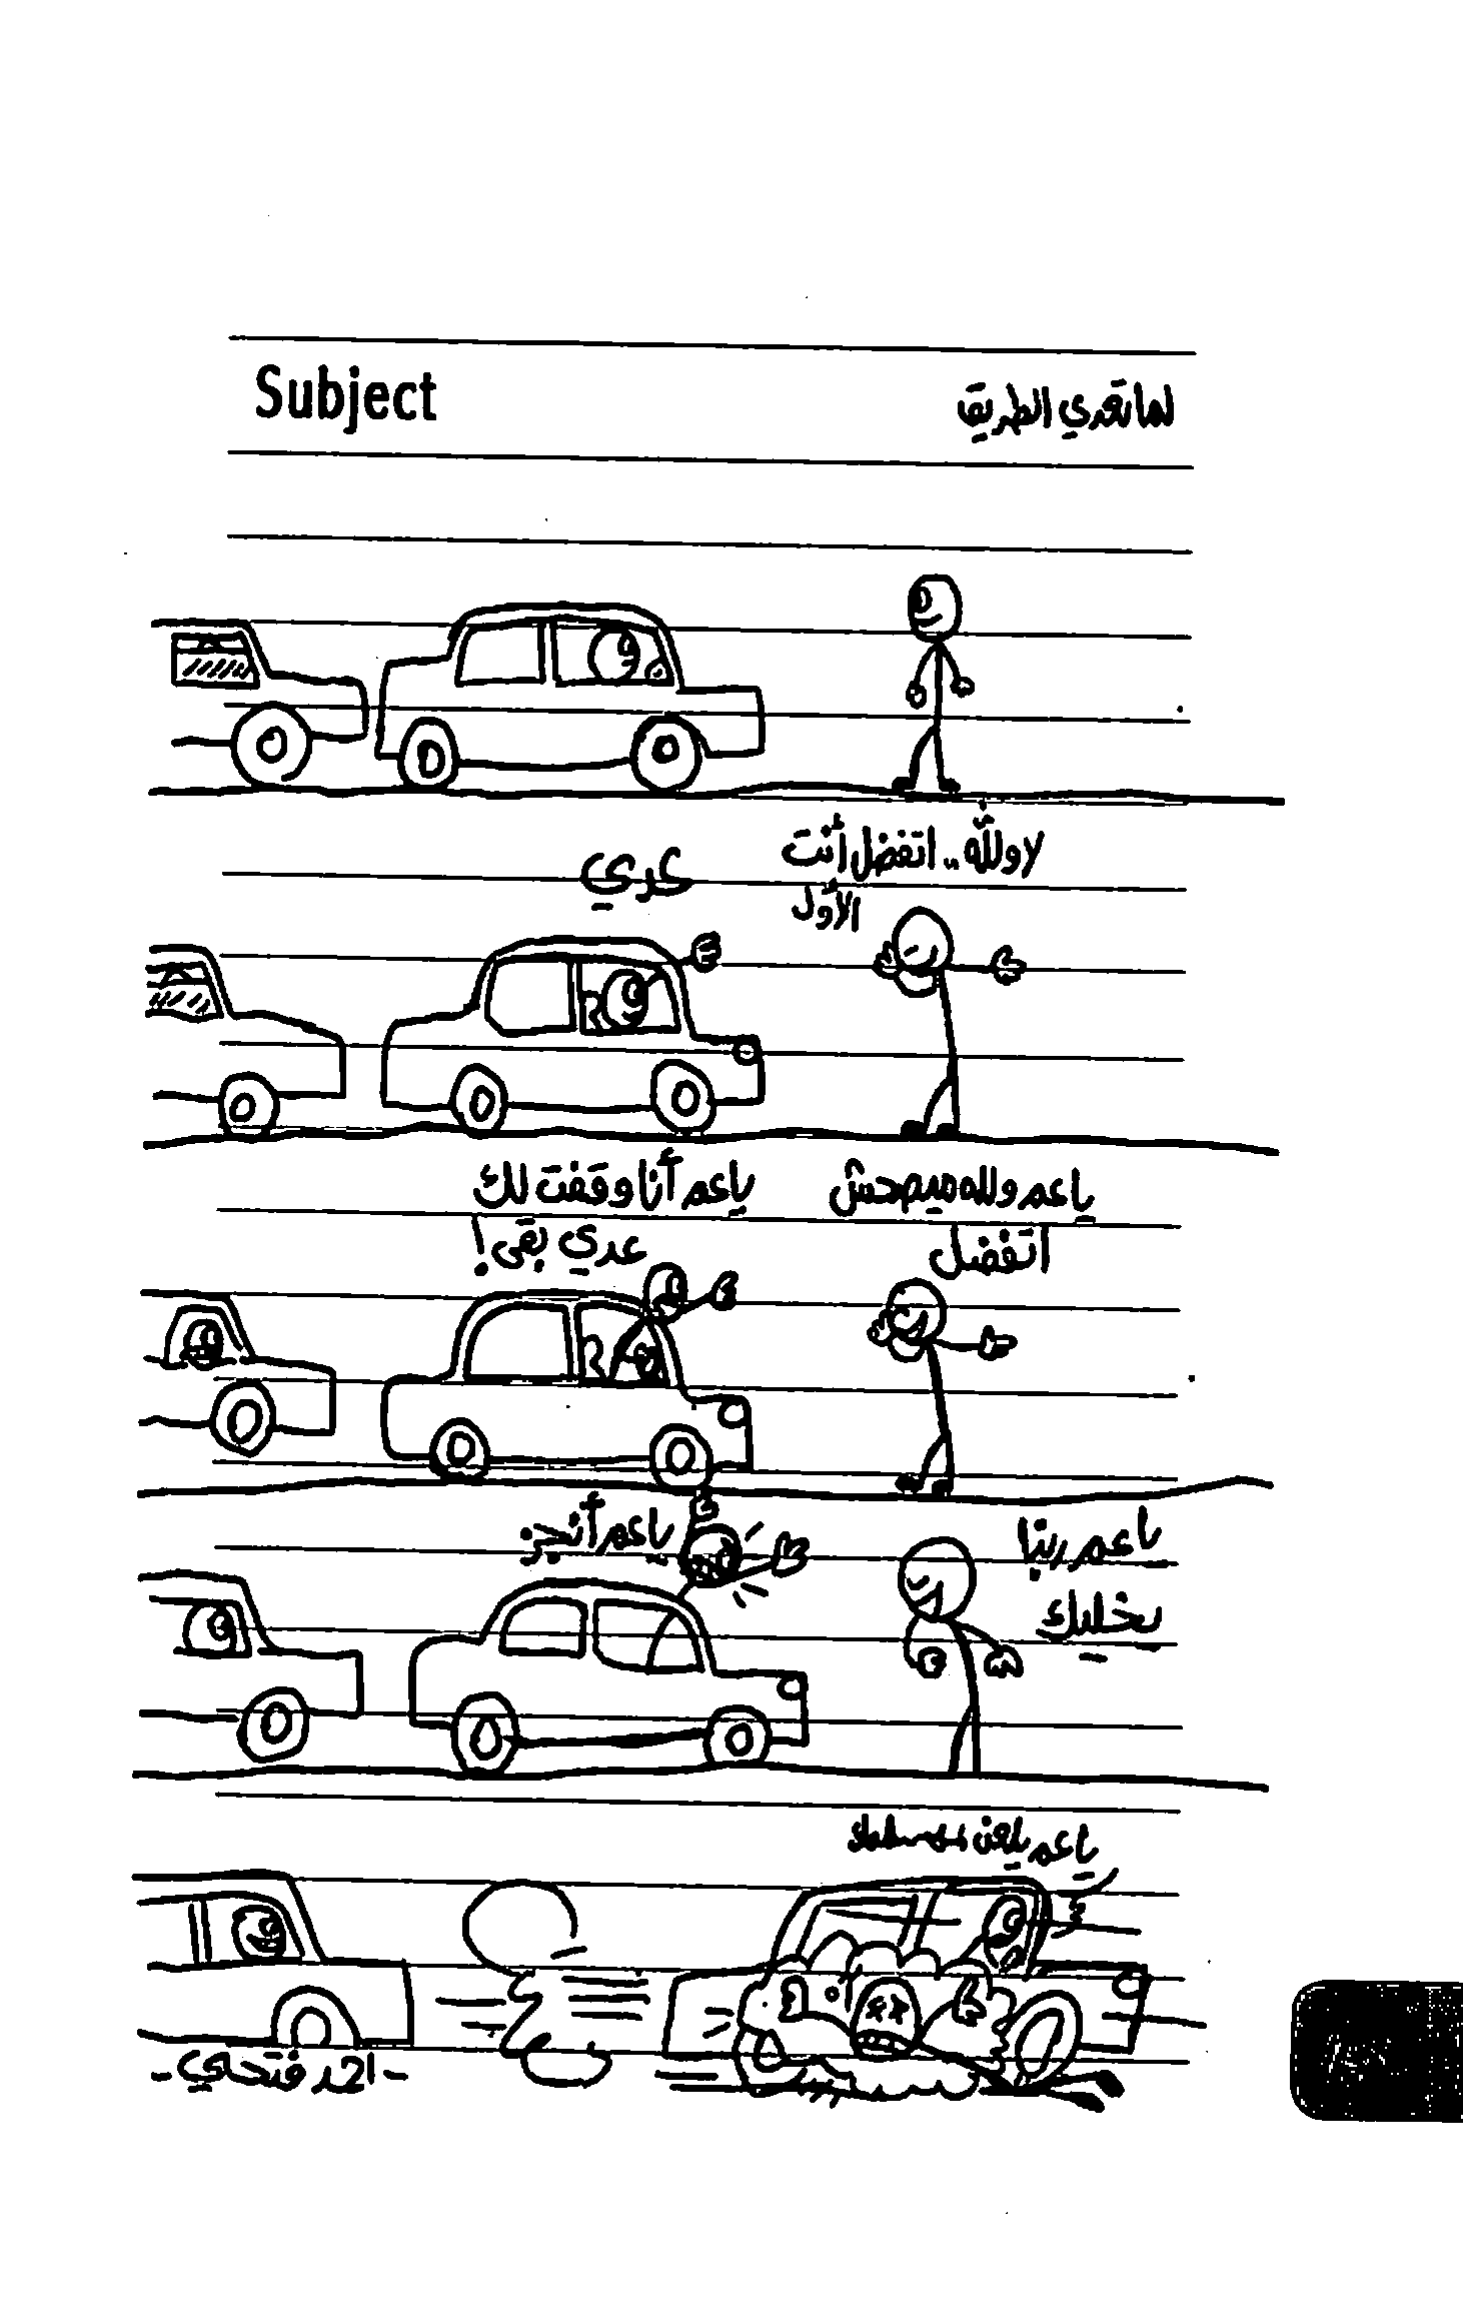 Subject
لما تعدي الطريق
لا ولله.. اتفضل أنت
الأول
عدي
يا عم ولله ميصحش
اتفضل
يا عم أنا وقفت لك
عدي بقى!
يا عم ربنا
يخليك
يا عم أنجز
يا عم يلعن
- احمد فتحي -